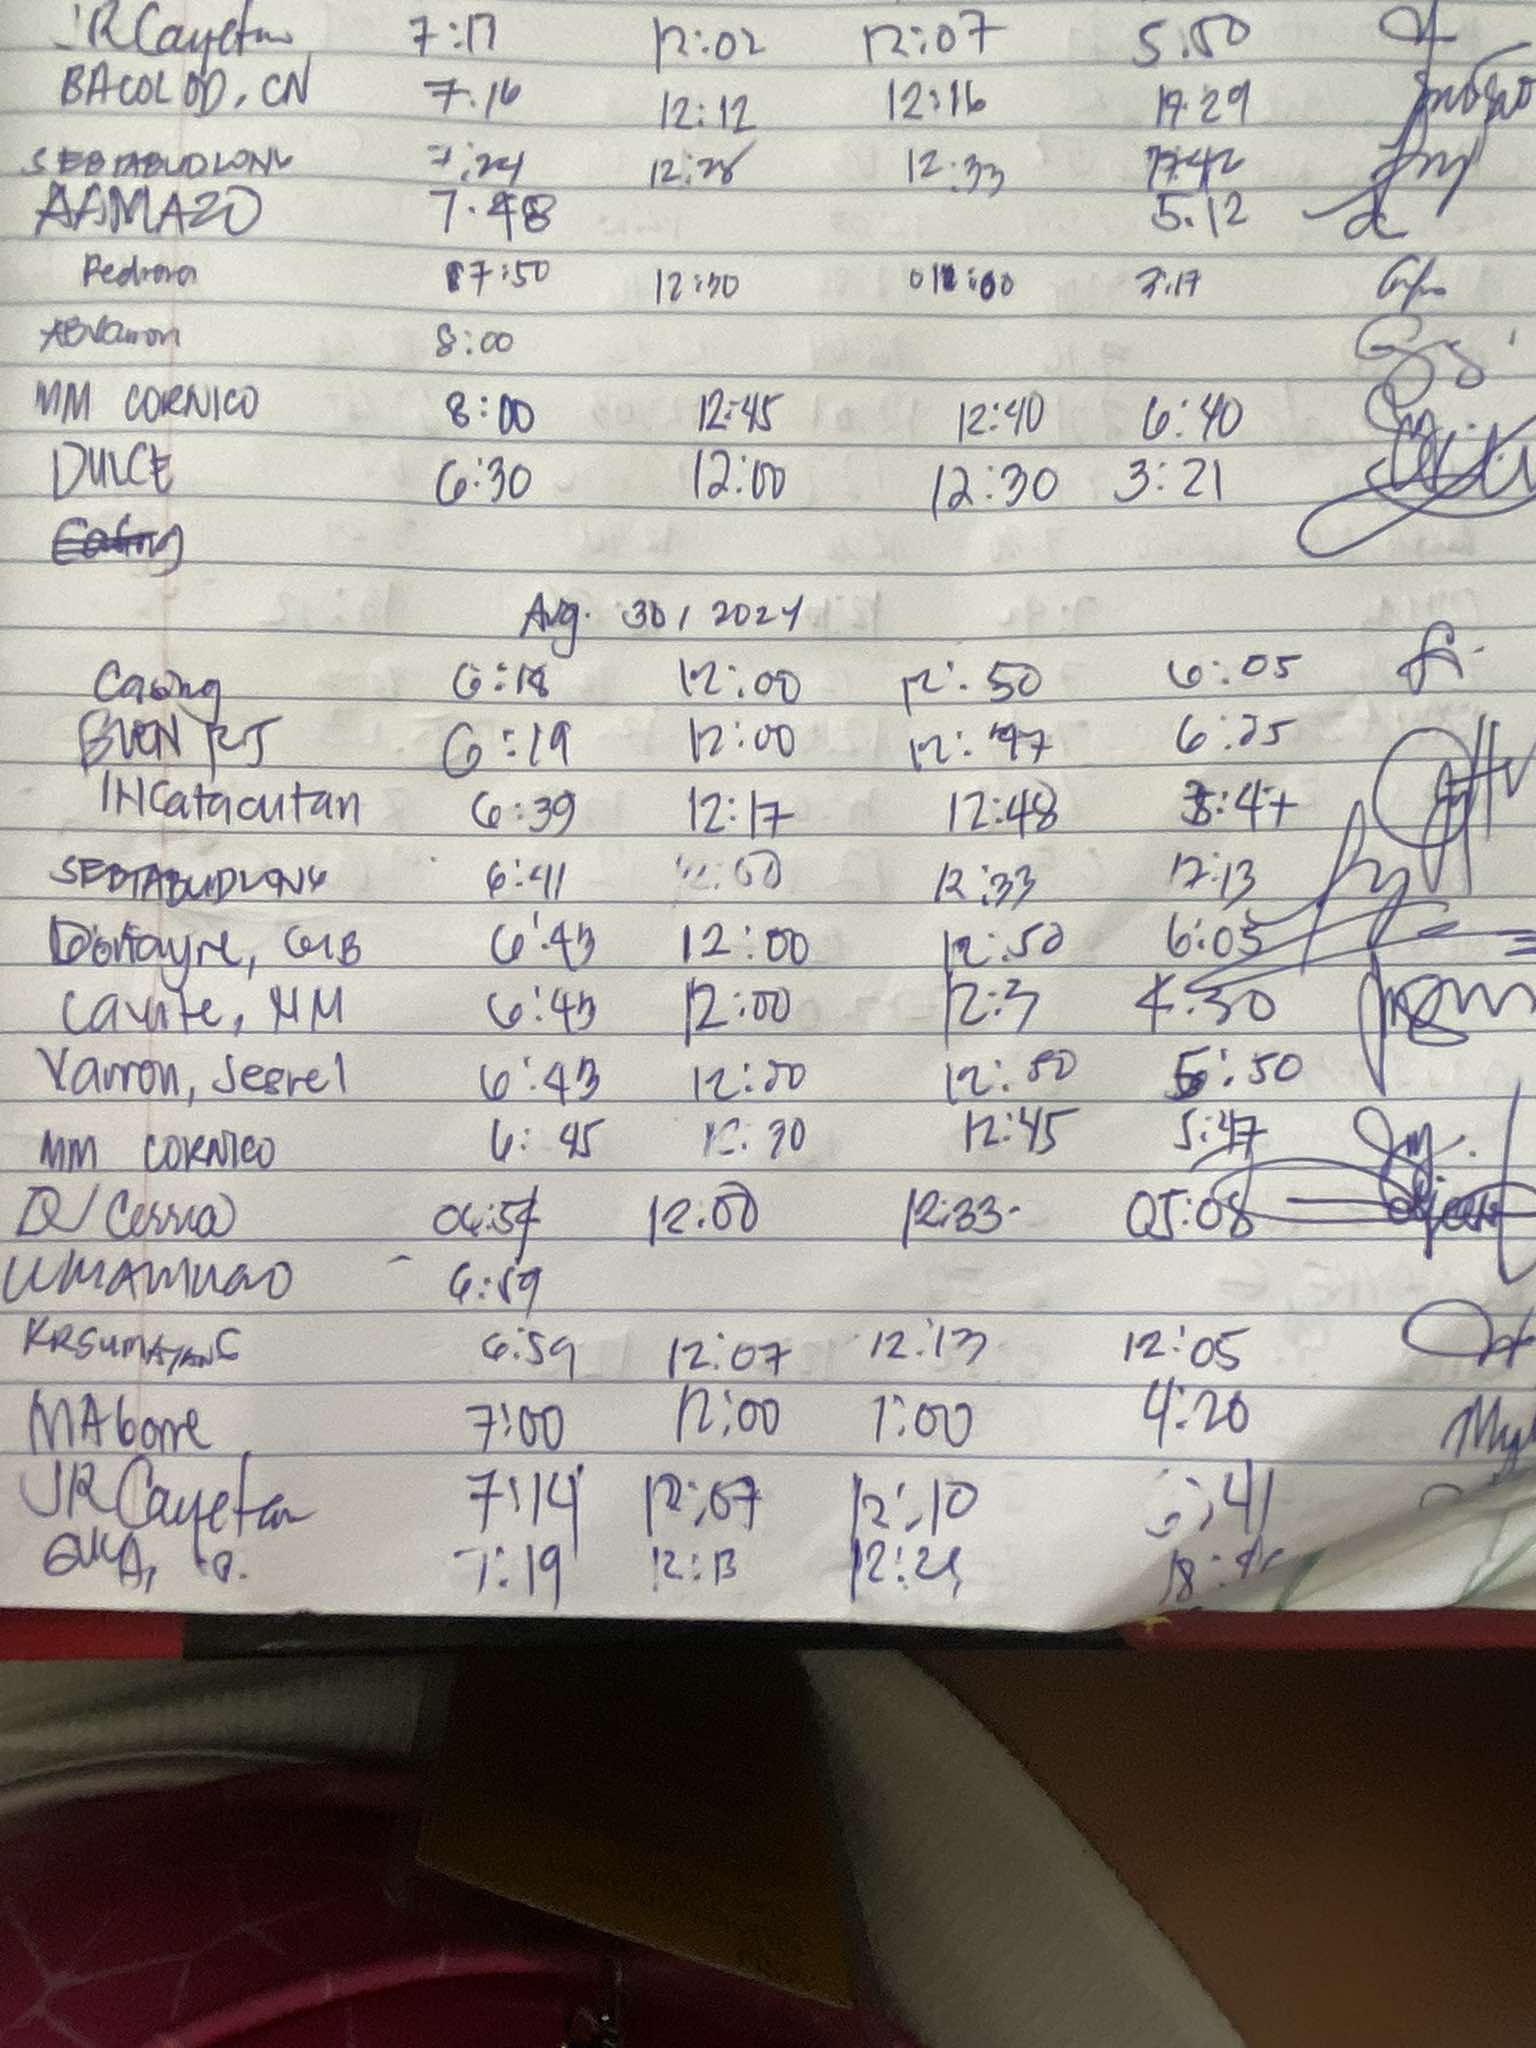 JR Cayetan 7:17 12:02 12:07 5.50
BACOLOD, CN 7.16 12:12 12:16 17.29
SEBTABUDLONG 7:24 12:28 12:33 17:42
AAMAZO 7.48 5.12
Pedrora 7:50 12:30 7.17
8:00
MM CORNICO 8:00 12:45 12:40 6:40
DULCE 6:30 12:00 12:30 3:21
Aug. 30, 2024
Casing 6:18 12:00 12:50 6:05
BUEN RJ 6:19 12:00 12:47 6:25
IHCatacutan 6:39 12:17 12:48
SEBTABUDLONG 6:41 12:33 17:13
Donayre, GLB 6:43 12:00 12:50 6:05
Cavite, MM 6:43 12:00 12:3 4:30
Varron, Jesrel 6:43 12:20 12:50 5:50
MM CORNICO 6:45 12:45 5:47
06:54 12:00 12:33 05:08
UMAMUAO 6:59
KRSUMAYANG 6:59 12:07 12:13 12:05
MAborre 7:00 12:00 1:00 4:20
JR Cayetan 7:14 12:07 12:10
7:19 12:13